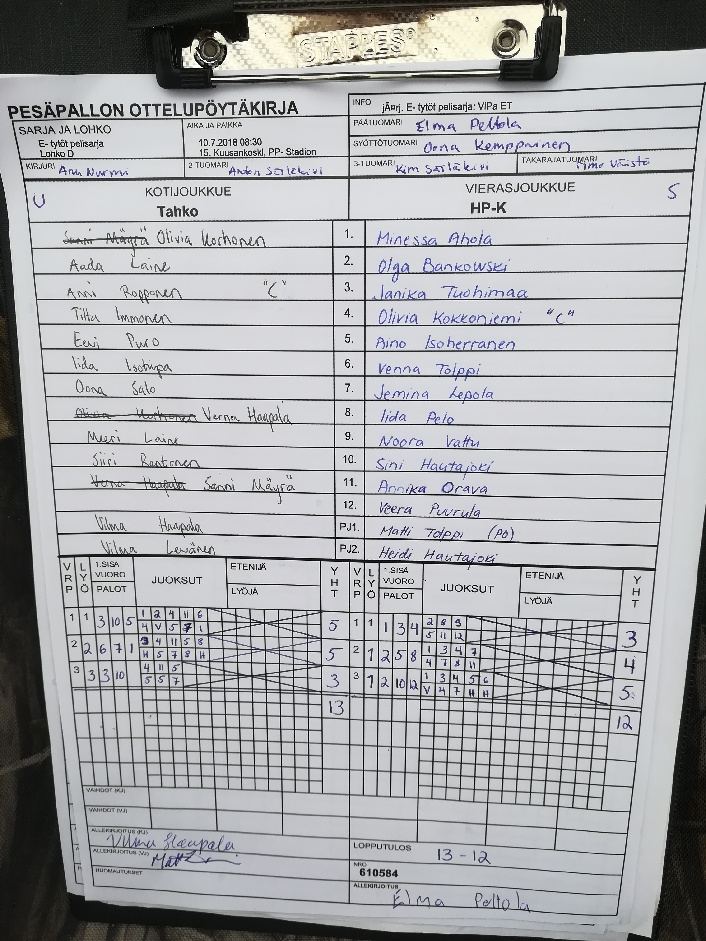 STAPLES
PESÄPALLON OTTELUPÖYTÄKIRJA
SARJA JA LOHKO
E- tytöt pelisarja
Lohko D
AIKA JA PAIKKA
10.7.2018 08:30
15. Kuusankoski, PP- Stadion
INFO
E- tytöt pelisarja: ViPa ET
PÄÄTUOMARI Elma Peltola
SYÖTTÖTUOMARI Oona Kemppainen
KIRJURI
2-TUOMARI
3-TUOMARI Kim Särläkivi
TAKARAJATUOMARI
U
KOTIJOUKKUE
Tahko
VIERASJOUKKUE
HP-K
S
Olivia Korhonen 1. Minessa Ahola
Aada Laine 2. Olga Bankowski
Anni Ropponen "C" 3. Janika Tuohimaa
Titta Immonen 4. Olivia Kokkoniemi "C"
Eevi Puro 5. Aino Isoherranen
Iida 6. Venna Tolppi
Oona Salo 7. Jemina Lepola
Verna Haapala 8. Iida Pelo
Meeri Laine 9. Noora Vattu
Siiri Rantonen 10. Sini Hautajoki
Verna Haapala Sanni Mäyrä 11. Annika Orava
12. Veera Puurula
Vilma Haapala PJ1. Matti Tolppi (PO)
Vilma PJ2. Heidi Hautajoki
VRP LYÖ 1.SISÄ VUORO PALOT JUOKSUT ETENIJÄ LYÖJÄ YHT
VRP LYÖ 1.SISÄ VUORO PALOT JUOKSUT ETENIJÄ LYÖJÄ YHT
1 1 3 10 5 1 2 4 11 6 5 1 1 1 3 4 2 8 9 3
4 V 5 7 1 5 11 12
2 2 6 7 1 3 4 11 5 8 5 2 1 2 5 8 1 3 4 7 4
H 5 7 8 H 4 7 8 11
3 3 3 10 4 11 5 3 3 1 2 10 12 1 3 4 5 6 5
5 5 7 V 4 7 H H
13 12
VAIHDOT (KJ)
VAIHDOT (VJ)
ALLEKIRJOITUS (KJ) Vilma Haapala
ALLEKIRJOITUS (VJ)
HUOMAUTUKSET
LOPPUTULOS 13-12
NRO
610584
ALLEKIRJOITUS
Elma Peltola